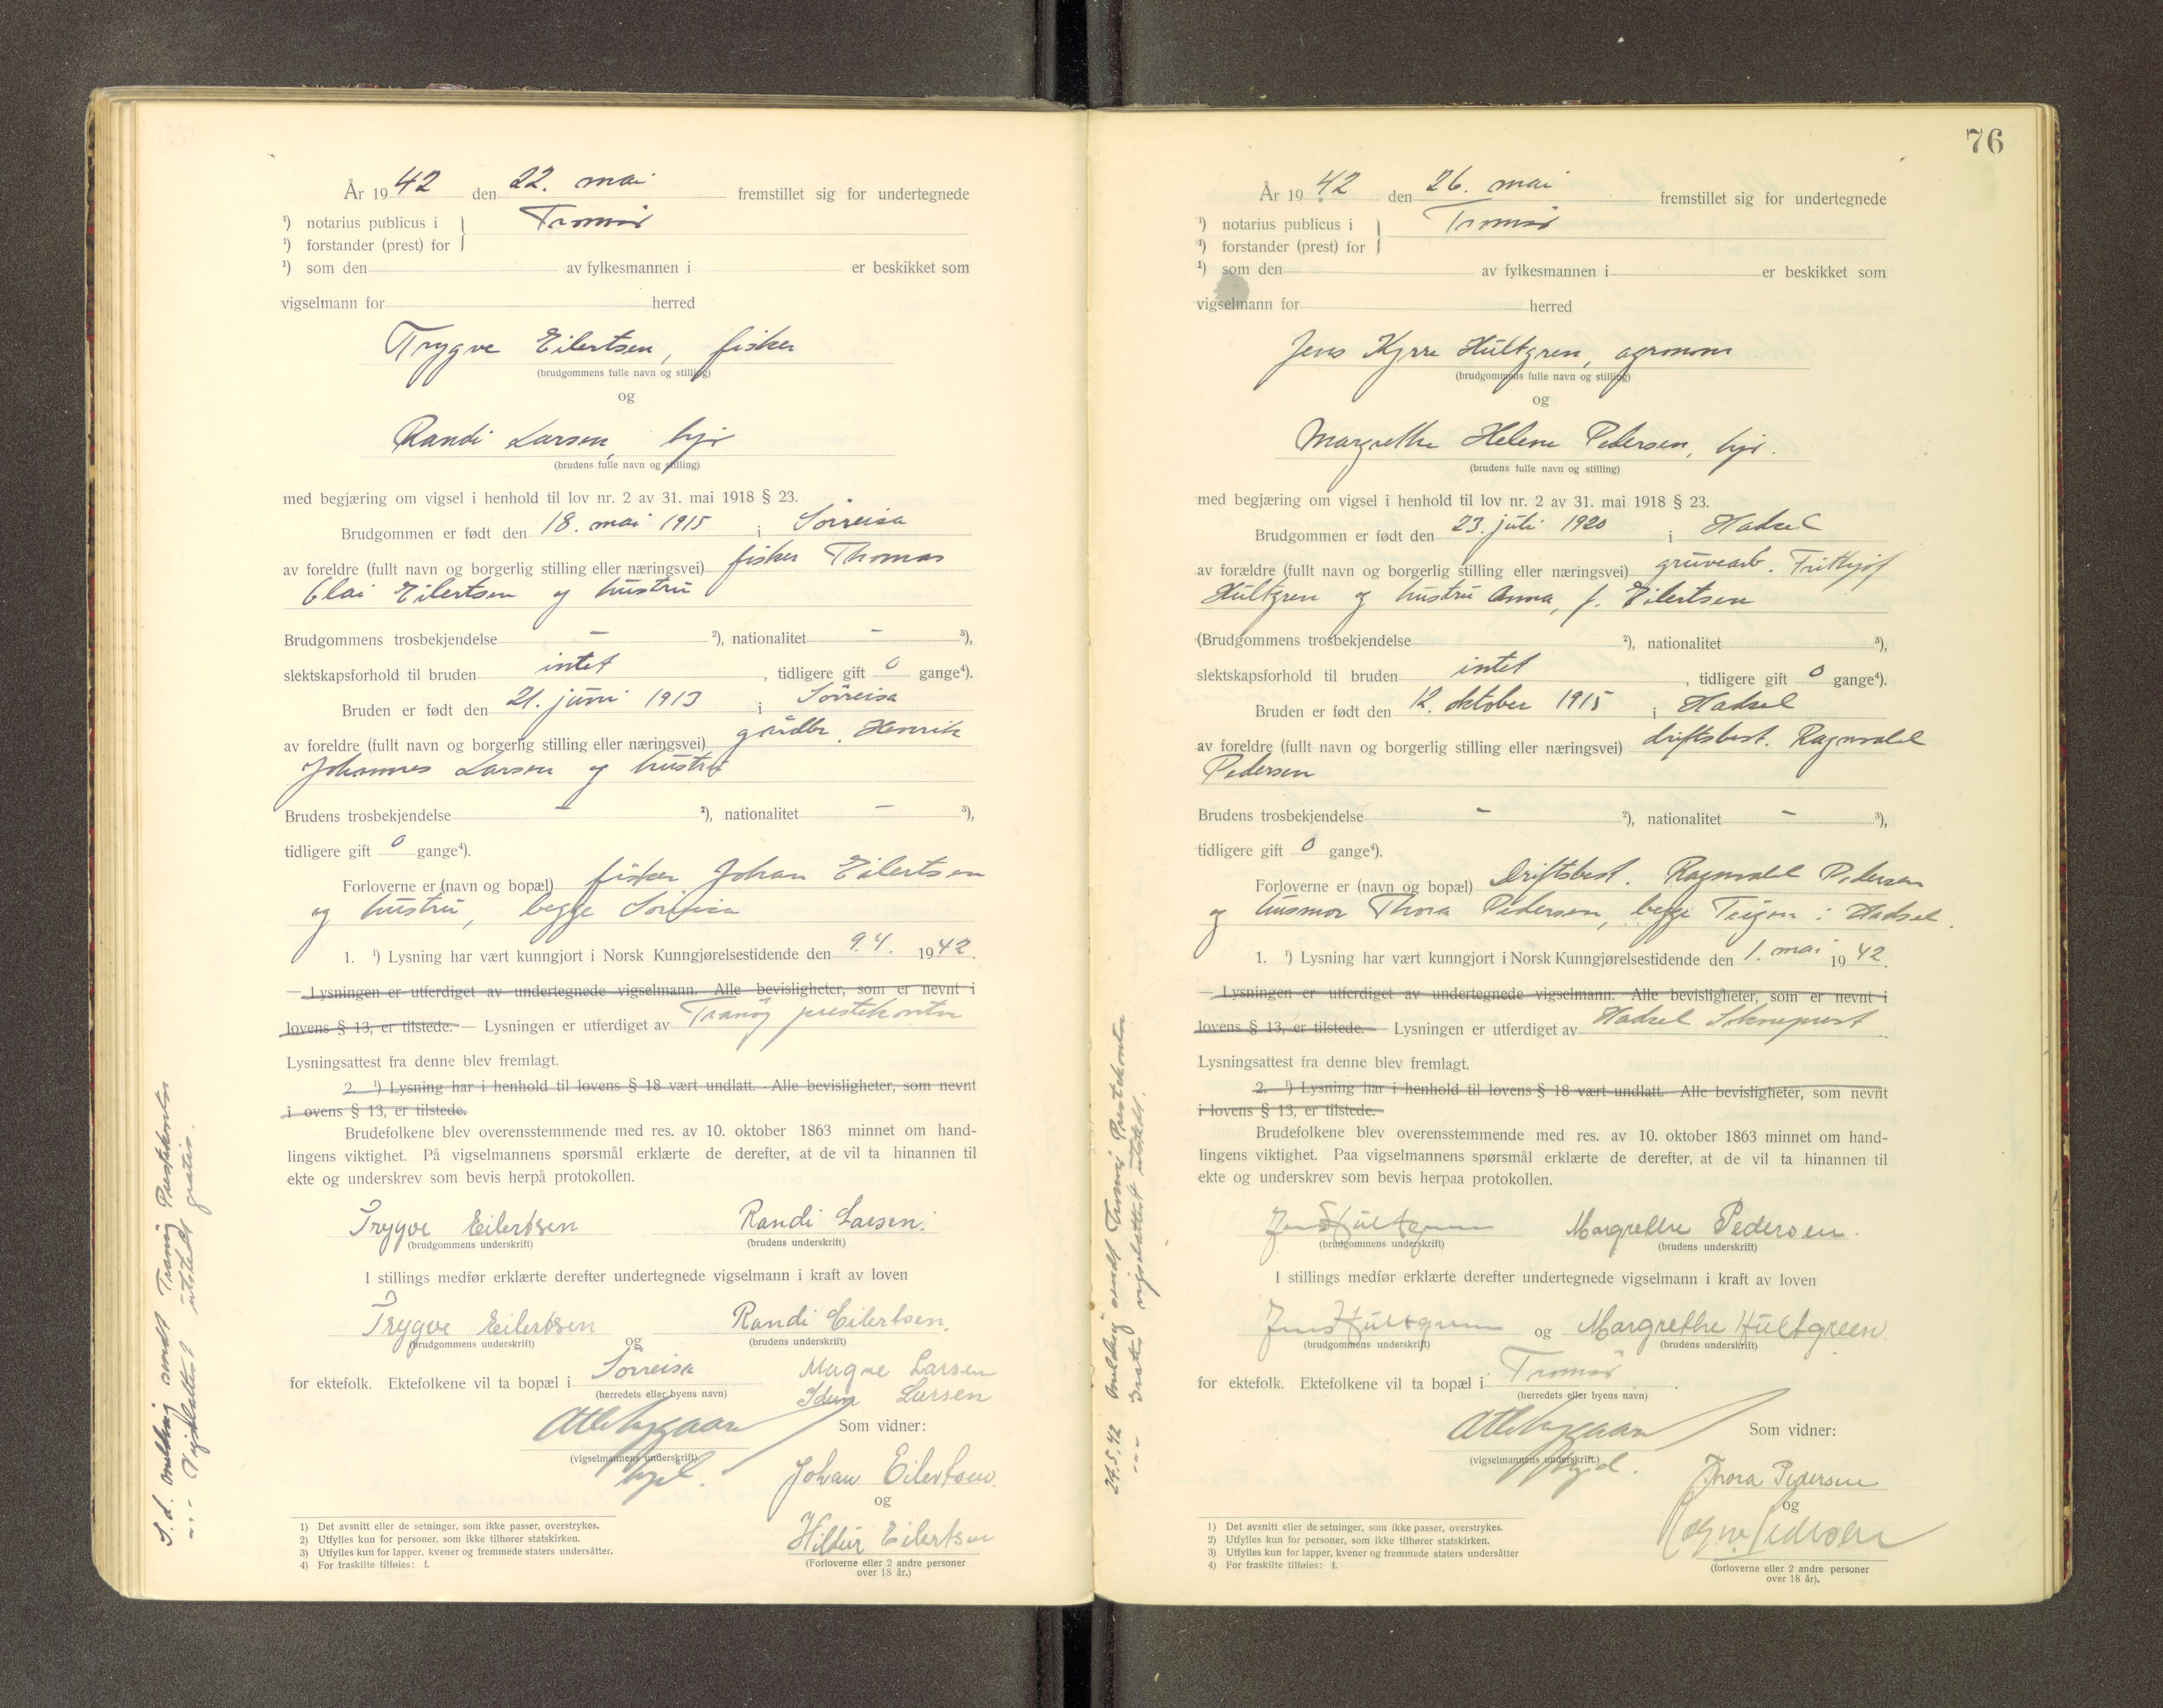 År 1942 den 22. mai fremstillet sig for undertegnede
¹) notarius publicus i } Tromsø
¹) forstander (prest) for
¹) som den av fylkesmannen i er beskikket som
vigselmann for herred
Trygve Eilertsen, fisker
(brudgommens fulle navn og stilling)
og
Randi Larsen, hjv
(brudens fulle navn og stilling)
med begjæring om vigsel i henhold til lov nr. 2 av 31. mai 1918 § 23.
Brudgommen er født den 18. mai 1915 i Sørreisa
av foreldre (fullt navn og borgerlig stilling eller næringsvei) fisker Thomas
Olai Eilertsen og hustru
Brudgommens trosbekjendelse — ²), nationalitet — ³),
slektskapsforhold til bruden intet, tidligere gift 0 gange⁴).
Bruden er født den 21. juni 1913 i Sørreisa
av foreldre (fullt navn og borgerlig stilling eller næringsvei) gårdbr. Henrik
Johannes Larsen og hustru
Brudens trosbekjendelse — ²), nationalitet — ³),
tidligere gift 0 gange⁴).
Forloverne er (navn og bopæl) fisker Johan Eilertsen
og hustru, begge Sørreisa
1. ¹) Lysning har vært kunngjort i Norsk Kunngjørelsestidende den 9.4. 1942.
— Lysningen er utferdiget av undertegnede vigselmann. Alle bevisligheter, som er nevnt i
lovens § 13, er tilstede. — Lysningen er utferdiget av Tranøy prestekontor
Lysningsattest fra denne blev fremlagt.
2. ¹) Lysning har i henhold til lovens § 18 vært undlatt. - Alle bevisligheter, som nevnt
i ovens § 13, er tilstede.
Brudefolkene blev overensstemmende med res. av 10. oktober 1863 minnet om hand-
lingens viktighet. På vigselmannens spørsmål erklærte de derefter, at de vil ta hinannen til
ekte og underskrev som bevis herpå protokollen.
Trygve Eilertsen Randi Larsen.
(brudgommens underskrift) (brudens underskrift)
I stillings medfør erklærte derefter undertegnede vigselmann i kraft av loven
Trygve Eilertsen og Randi Eilertsen.
(brudgommens underskrift) (brudens underskrift)
for ektefolk. Ektefolkene vil ta bopæl i Sørreisa Magne Larsen
(herredets eller byens navn) Idun Larsen
Som vidner:
(vigselmannens underskrift).
Johan Eilertsen.
og
Hildur Eilertsen
(Forloverne eller 2 andre personer
over 18 år.)
1) Det avsnitt eller de setninger, som ikke passer, overstrykes.
2) Utfylles kun for personer, som ikke tilhører statskirken.
3) Utfylles kun for lapper, kvener og fremmede staters undersåtter.
4) For fraskilte tilføies: f.
S.d. melding sendt Tranøy Prestekontor
—"— Vigselattest utstedt gratis.
76
År 1942 den 26. mai fremstillet sig for undertegnede
¹) notarius publicus i } Tromsø
¹) forstander (prest) for
¹) som den av fylkesmannen i er beskikket som
vigselmann for herred
Jens Kyrre Hultgren, agronom
(brudgommens fulle navn og stilling)
og
Margrethe Helene Pedersen, hjv.
(brudens fulle navn og stilling)
med begjæring om vigsel i henhold til lov nr. 2 av 31. mai 1918 § 23.
Brudgommen er født den 23. juli 1920 i Hadsel
av forældre (fullt navn og borgerlig stilling eller næringsvei) gruvearb. Frithjof
Hultgren og hustru Anna, f. Eilertsen
(Brudgommens trosbekjendelse ²), nationalitet ³),
slektskapsforhold til bruden intet, tidligere gift 0 gange⁴).
Bruden er født den 12. oktober 1915 i Hadsel
av foreldre (fullt navn og borgerlig stilling eller næringsvei) driftsbest. Ragnvald
Pedersen
Brudens trosbekjendelse - ²), nationalitet - ³),
tidligere gift 0 gange⁴).
Forloverne er (navn og bopæl) Driftsbest. Ragnvald Pedersen
og husmor Thora Pedersen, begge Teigen i Hadsel.
1. ¹) Lysning har vært kunngjort i Norsk Kunngjørelsestidende den 1. mai 1942.
— Lysningen er utferdiget av undertegnede vigselmann. Alle bevisligheter, som er nevnt i
lovens § 13, er tilstede. — Lysningen er utferdiget av Hadsel Sokneprest
Lysningsattest fra denne blev fremlagt.
2. ¹) Lysning har i henhold til lovens § 18 vært undlatt. Alle bevisligheter, som nevnt
i lovens § 13, er tilstede.
Brudefolkene blev overensstemmende med res. av 10. oktober 1863 minnet om hand-
lingens viktighet. Paa vigselmannens spørsmål erklærte de derefter, at de vil ta hinannen til
ekte og underskrev som bevis herpaa protokollen.
Jens Hultgren Margrethe Pedersen.
(brudgommens underskrift) (brudens underskrift)
I stillings medfør erklærte derefter undertegnede vigselmann i kraft av loven
Jens Hultgren og Margrethe Hultgreen
(brudgommens underskrift) (brudens underskrift)
for ektefolk. Ektefolkene vil ta bopæl i Tromsø.
(herredets eller byens navn)
Som vidner:
(vigselmannens underskrift.)
Thora Pedersen
og
Pedersen
(forloverne eller 2 andre personer
over 18 år).
1) Det avsnitt eller de setninger, som ikke passer, overstrykes.
2) Utfylles kun for personer, som ikke tilhører statskirken.
3) Utfylles kun for lapper, kvener og fremmede staters undersåtter
4) For fraskilte tilføies: f.
27.5.42 melding sendt Prestekontor
—"— vigselattest utstedt.